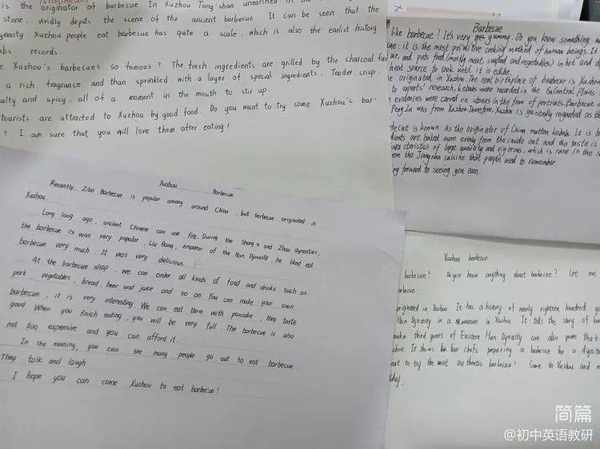 is the originator of barbecue In Xuzhou Tong shan unearthed in the
stone vividly depits the scene of the ancient barbecue It can be seen that the
ynasty Xuzhou people eat barbecue has quite a scale, which is also the earliest history
records.
Xuzhou's barbecues so famous? The fresh ingredients are grilled by the charcoal
a rich fragrance and than sprinkled with a layer of special ingredients. Tender crisp
salty and spicy, all of a moment in the mouth to stir up.
tourists are attracted to Xuzhou by good food. Do you want to try some Xuzhou's bar-
? I am sure that you will love them after eating!
Barbecue
like barbecue? It's very yummy. Do you know something
it is the most primitive cooking method of human beings. It
and puts food (mostly meat, seafood and vegetables)
heat source to cook until it is edible.
originated in Xuzhou. The real birthplace of barbecue is Xuzhou
to experts' research, kebabs were recorded in the Central Plains
evidences were carved on stones in the form of portraits.
Peng Zu was from Xuzhou. Therefore, Xuzhou is generally regarded as the
is known as the originator of China mutton kebab. It is
are baked more evenly from the inside out and the taste is
characteristics of large quantity and vigorous, which is rare in the
from the Jiangnan cuisine that people used to remember.
looking forward to seeing you soon.
Xuzhou Barbecue
Recently, Zibo Barbecue is popular among around China, but barbecue originated in
Xuzhou.
Long long ago, ancient Chinese can use fire. During the Shang and Zhou dynasties,
the barbecue its was very popular. Liu Bang, emperor of the Han Dynasty he liked eat
barbecue very much. It was very delicious.
At the barbecue shop, we can order all kinds of food and drinks such as
pork vegetables, bread beer and juice and so on. You can make your own
barbecue, it is very interesting. We can eat them with powder, they taste
good. When you finish eating, you will be very full. The barbecue is also
not too expensive and you can afford it.
In the evening, you can see many people go out to eat barbecue
They talk and laugh
I hope you can come Xuzhou to eat barbecue!
Xuzhou barbecue
barbecue? Do you know anything about barbecue? Let me
barbecue
originated in Xuzhou. It has a history of nearly eighteen hundred
Han Dynasty in a museum in Xuzhou. It tells the story of
three years of Eastern Han Dynasty can also prove that
It shows
want to try the most authentic barbecue? Come to Xuzhou and
简篇
@初中英语教研